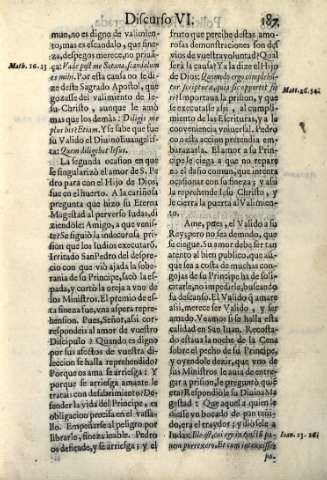 Discurso VI.
187.
mun, no es digno de valimiento
mas es escandalo, que fineza,
despegos merece, no privança:
Vade post me Satana, scandalum
Math. 16. 23.
es mihi. Por esta causa no le dize
deste Sagrado Apostol, que
gozasse del valimiento de Iesu
Christo, aunque le amò
mas que los demàs: Diligis me
plus his? Etiam. Y se sabe que fue
su Valido el Divino Evangelista:
Quem diligebat Iesus.
La segunda ocasion en que
se singularizò el amor de S. Pedro
para con el Hijo de Dios,
fue en el huerto. A la cariñosa
pregunta que hizo su Eterna
Magestad al perverso Iudas, diziendole:
Amigo, a que veniste?
Se siguiò la indecorosa prision
que los Iudios executarõ.
Irritado San Pedro del desprecio
con que viò ajada la soberania
de su Principe, sacò la espada,
y cortò la oreja a vno de
los Ministros. El premio de esta
fineza fue, vna aspera reprehension.
Pues, Señor, assi correspondeis
al amor de vuestro
Discipulo? Quando es digno
por sus afectos de vuestra dileccion
se halla reprehendido?
Porque os ama se arriesga: Y
porque se arriesga amante le
tratais con desabrimiento? Defender
la vida del Principe, es
obligacion precisa en el vassallo.
Empeñarse al peligro por
librarlo, fineza loable. Pedro
os defiende, y se arriesga; y el
fruto que percibe destas amorosas
demonstraciones son desvios
de vuestra voluntad? Qual
serà la causa? Ya la dize el Hijo
de Dios: Quomodo ergo complebuntur
scripturæ, quia sic oportet fieri?
Matt. 26. 54.
Importaua la prision, y que
se executasse assi, al cumplimiento
de las Escrituras, y a la
conveniencia vniversal. Pedro
con esta accion pretendia embarazarla.
El amor a tu Principe
le ciega a que no repare
en el daño comun, que intenta
ocasionar con su fineza; y assi
la reprehende Iesu Christo, y
le cierra la puerta al Valimiento.
Ame, pues, el Valido a su
Rey; pero no sea de modo, que
se ciegue. Su amor debe ser tan
atento al bien publico, que aunque
sea a costa de muchas congojas
de su Principe ha de solicitarle,
no impedirle, buscando
su descanso. El Valido q̃ amare
assi, merece ser Valido, y ser
amado. Veamos si se halla esta
calidad en San Iuan. Recostado
estaua la noche de la Cena
sobre el pecho de su Principe,
y oyendole dezir, que vno de
sus Ministros le auia de entregar
a prision, le preguntò quiẽ
era? Respondiòle su Divina Magestad:
Que aquel a quien le
diesse vn bocado de pan untado,
era el traydor; y diòsele a
Iudas: Ille est, cui ego intinctum panem
Ioan. 13. 26.
porrexero. Et cum intinxisset
pa-